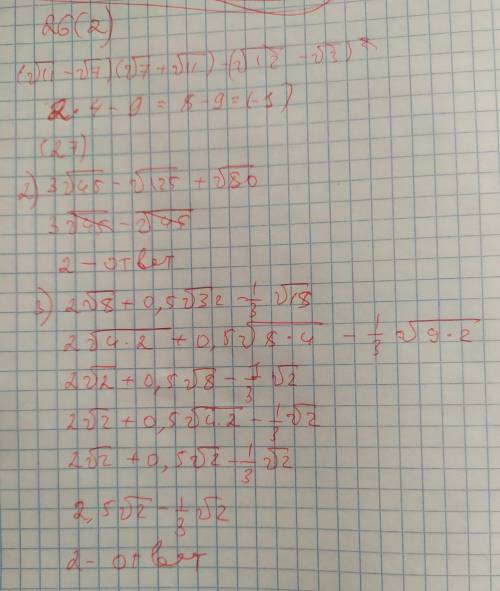 26(2)
(√11 - √7)(√7 + √11) - (√12 - √3)²
2 · 4 - 9 = 8 - 9 = (-1)
(27)
2) 3√45 - √125 + √80
3√45 - √45
2 - ответ
3) 2√8 + 0,5√32 - 1/3 √18
2√4·2 + 0,5√8·4 - 1/3 √9·2
2√2 + 0,5√8 - 1/3 √2
2√2 + 0,5√4·2 - 1/3 √2
2√2 + 0,5√2 - 1/3 √2
2,5√2 - 1/3 √2
2 - ответ